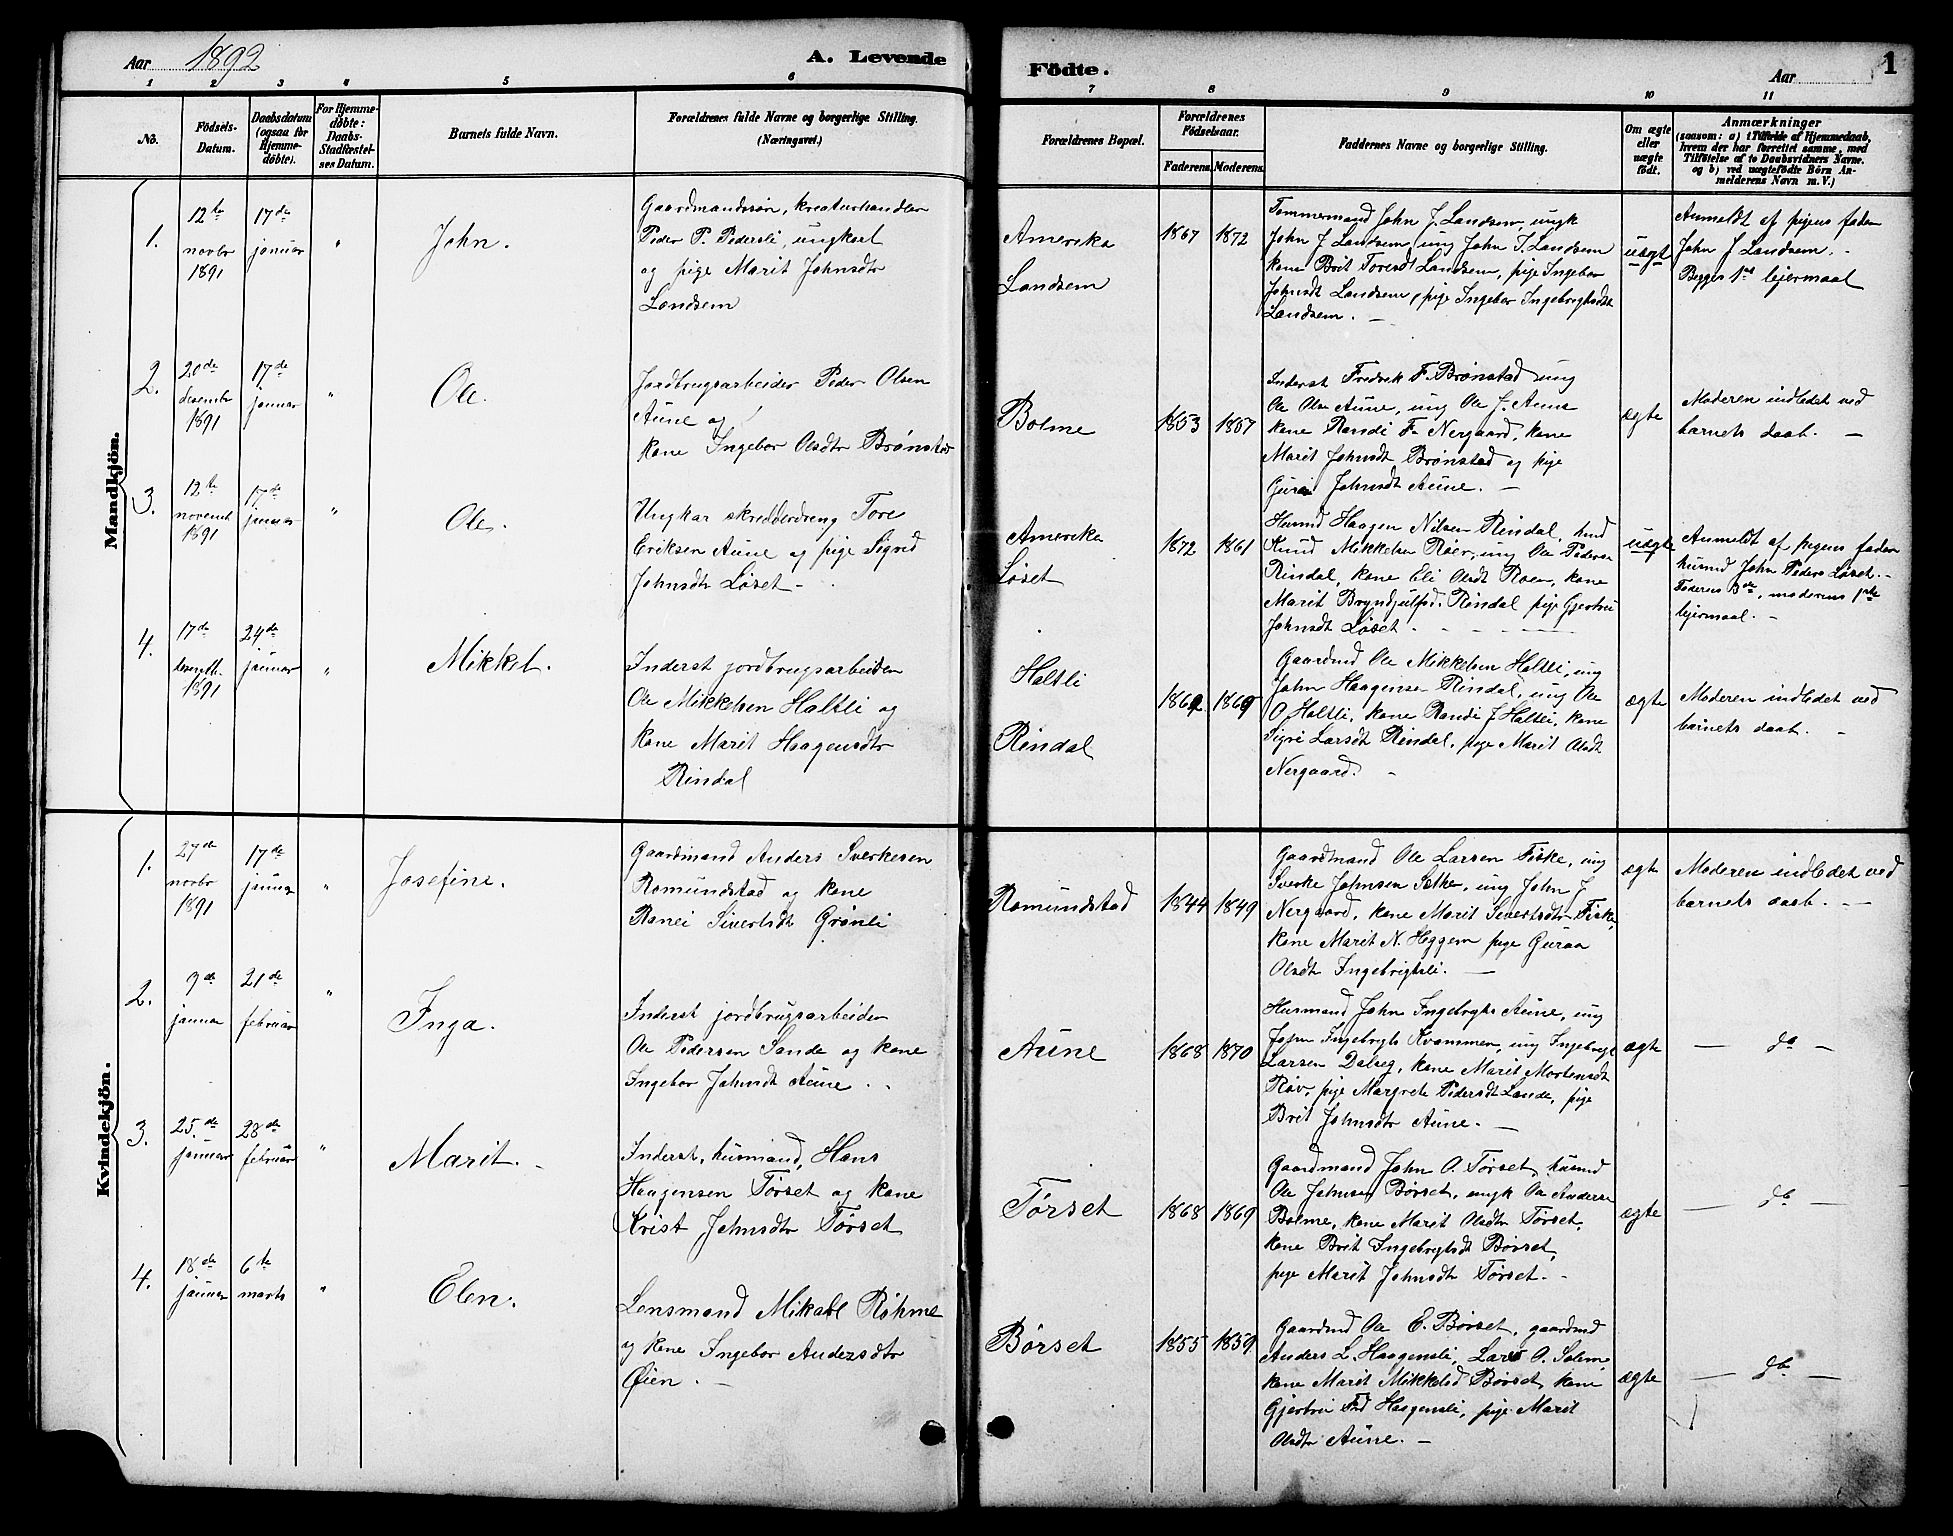 Aar 1892
A. Levende
Födte.
Aar
1
1 2 3 4 5 6
7 8 9 10 11
No.
Födsels-
Datum.
Daabsdatum
(ogsaa for
Hjemme-
döbte).
For Hjemme-
døbte:
Daabs-
Stadfæstel-
ses Datum.
Barnets fulde Navn.
Forældrenes fulde Navne og borgerlige Stilling.
(Næringsvei.)
Forældrenes Bopæl.
Forældrenes
Födselsaar.
Faderens. Moderens.
Faddernes Navne og borgerlige Stilling.
Om ægte
eller
uægte
födt.
Anmærkninger
(saasom: a) i Tilfælde af Hjemmedaab,
hvem der har forrettet samme, med
Tilföielse af to Daabsvidners Navne.
og b) ved uægtefödte Börn An-
melderens Navn m. V.)
Mandkjön.
1.
12te
novbr
1891
17de
januar
"
John.
Gaardmandssøn, kreaturhandler
Peder P. Pedersli, ungkarl
og pige Marit Johnsdtr
Landsem
Amerika
Landsem
1867 1872
Tømmermand John J. Landsem, ungk
John J Landsem, ung John T. Landsem
kone Brit Toresdt Landsem, pige Ingebor
Johnsdt Landsem, pige Ingebor Ingebrigtsdt
Landsem. -
uægt
Anmeldt af pigens fader
John J Landsem. -
Begges 1ste lejermaal
2.
20de
desembr
1891
17de
januar
"
Ole.
Jordbrugsarbeider Peder Olsen
Aune og
kone Ingebor Olsdtr Brønstad
Bolme
1853 1857
Inderst Fredrik F. Brønstad ung
Ole Olsen Aune, ung Ole J. Aune
kone Randi F. Nergaard, kone
Marit Johnsdt Brønstad og pige
Guru Johnsdt Aune. -
ægte
Moderen indledet ved
barnets daab. -
3.
12te
novemb
1891
17de
januar
"
Ole.
Ungkar skrædderdreng Tore
Eriksen Aune og pige Sigrid
Johnsdtr Løset -
Amerika
Løset
1872 1861
Husmd Haagen Nilsen Rindal, husmd
Knud Mikkelsen Røer, ung Ole Pedersen
Rindal, kone Eli Olsdt Røen, kone
Marit Bryndjulfsd. Rindal pige Gjertru
Johnsdt Løset. -
uægte
Anmeldt af pigens fader
husmd John Peders Løset. -
Faderens 3de, moderens 1ste
lejermaal. -
4.
17de
1891
24de
januar
"
Mikkel.
Inderst jordbrugsarbeider
Ole Mikkelsen Haltli og
kone Marit Haagensdtr
Rindal
Haltli
Rindal
1862 1869
Gaardmd Ole Mikkelsen Haltli, ung
John Haagensen Rindal, ung Ole
O. Haltli, kone Randi J Haltli, kone
Sigri Larsdt Rindal, pige Marit Olsdt
Nergaard. -
ægte
Moderen indledet ved
barnets daab. -
Kvindekjön.
1.
27de
novbr
1891
17de
januar
"
Josefine.
Gaardmand Anders Sverkesen
Romundstad og kone
Ranei Sivertsdt Grønli
Romundstad
1844 1849
Gaardmand Ole Larsen Fiske, ung
Sverke Johnsen Sæthe, ung John J
Nergaard, kone Marit Sivertsdtr Fiske,
kone Marit N. Heggem pige Guraa
Olsdt Ingebrigtsli. -
ægte
Moderen indledet ved
barnets daab. -
2.
9de
januar
21de
februar
"
Inga.
Inderst jordbrugsarbeider
Ole Pedersen Sande og kone
Ingebor Johnsdt Aune.
Aune
1868 1870
Husmand John Ingebrigts Aune, ung
John Ingebrigts Kvammen, ung Ingebrigt
Larsen Dalseg, kone Marit Mortensdt
Røv, pige Margrete Pedersdt Sande, pige
Brit Johnsdtr Aune. -
ægte
- do -
3.
25de
januar
28de
februar
"
Marit.
Inderst, husmand, Hans
Haagensen Tørset og kone
Krist Johnsdtr Tørset
Tørset
1868 1869
Gaardmand John O. Tørset, husmd
Ole Johnsen Børset, ungk Ole Anderse
Bolme, kone Marit Olsdtr Tørset,
kone Brit Ingebrigtsdt Børset,
pige Marit Johnsdt Tørset. -
ægte
- do -
4.
18de
januar
6te
marts
"
Elen.
Lensmand Mikael Røhme
og kone Ingebor Andersdtr
Øien. -
Børset
1855 1859
Gaardmd Ole E. Børset, gaardmd
Anders L. Haagensli, Lars O. Solem,
kone Marit Mikkelsd Børset, kone
Gjertru Haagensli, pige Marit
Olsdtr Aune. -
ægte
- do -